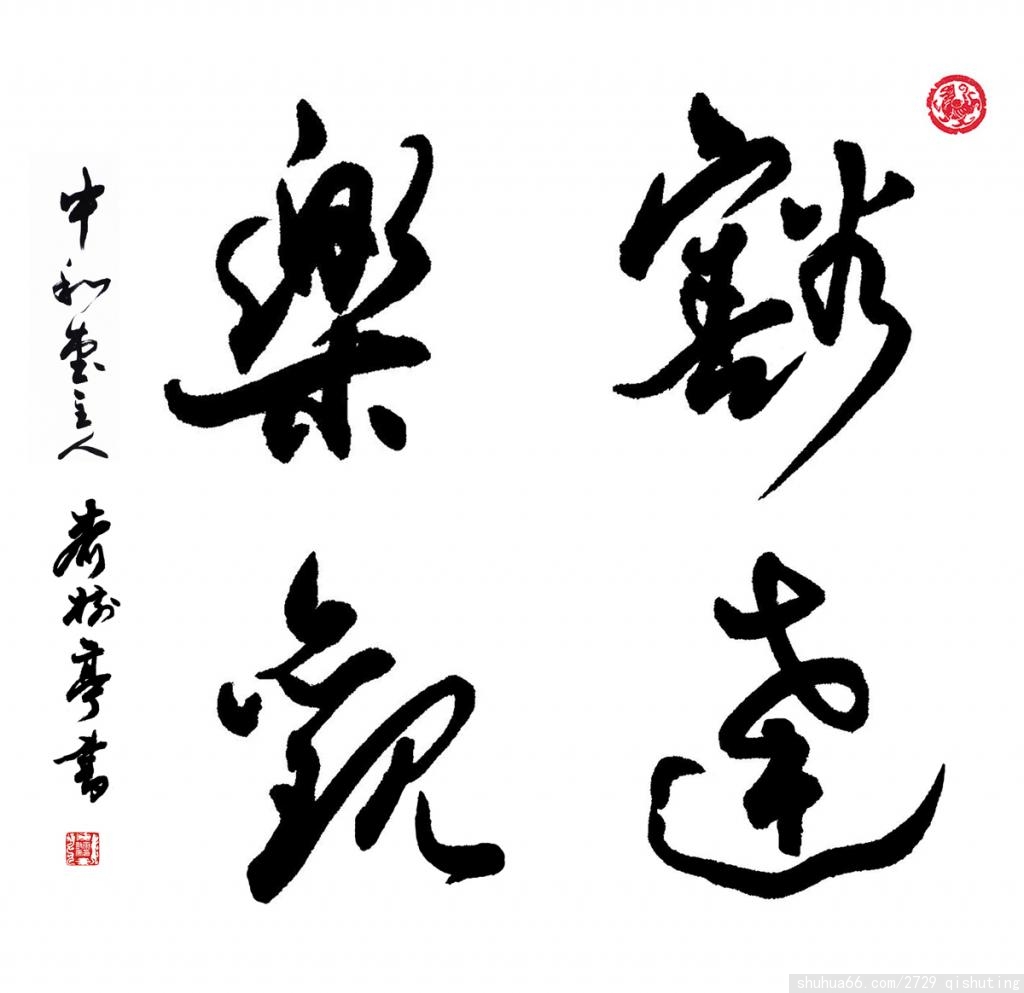 豁達
樂觀
中和堂主人 齊樹亭書
shuhua66.com/2729 qishuting